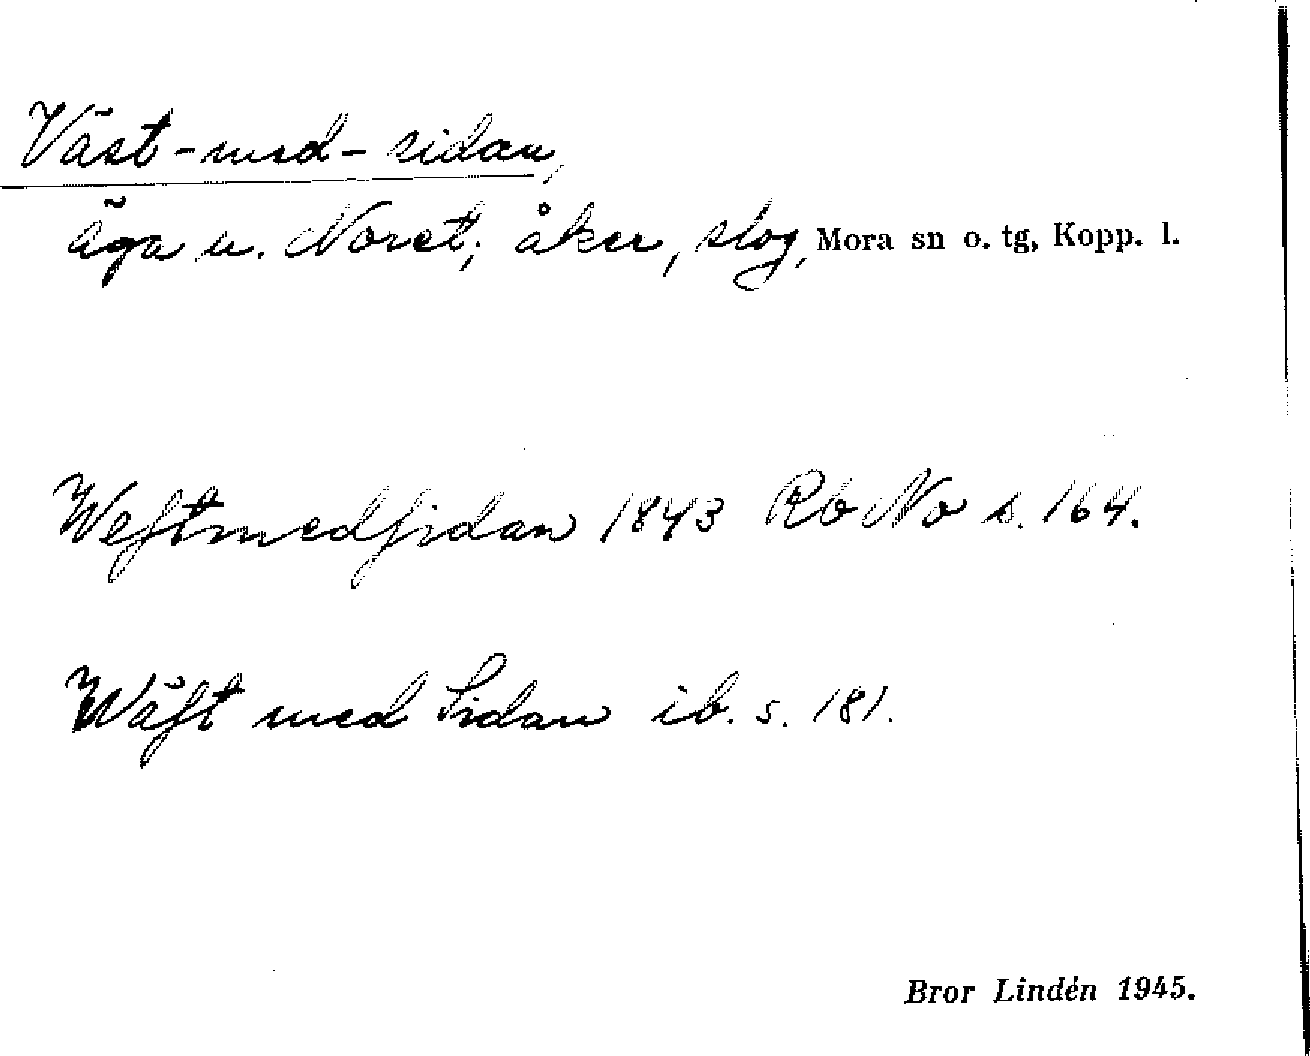 Väst-med-sidan,
äga u. Noret; åker, slog, Mora sn o. tg, Kopp. l.
Weſtmedſidan 1843 Rb No s. 164.
Wäſt med Sidan ib. s. 181.
Bror Lindén 1945.